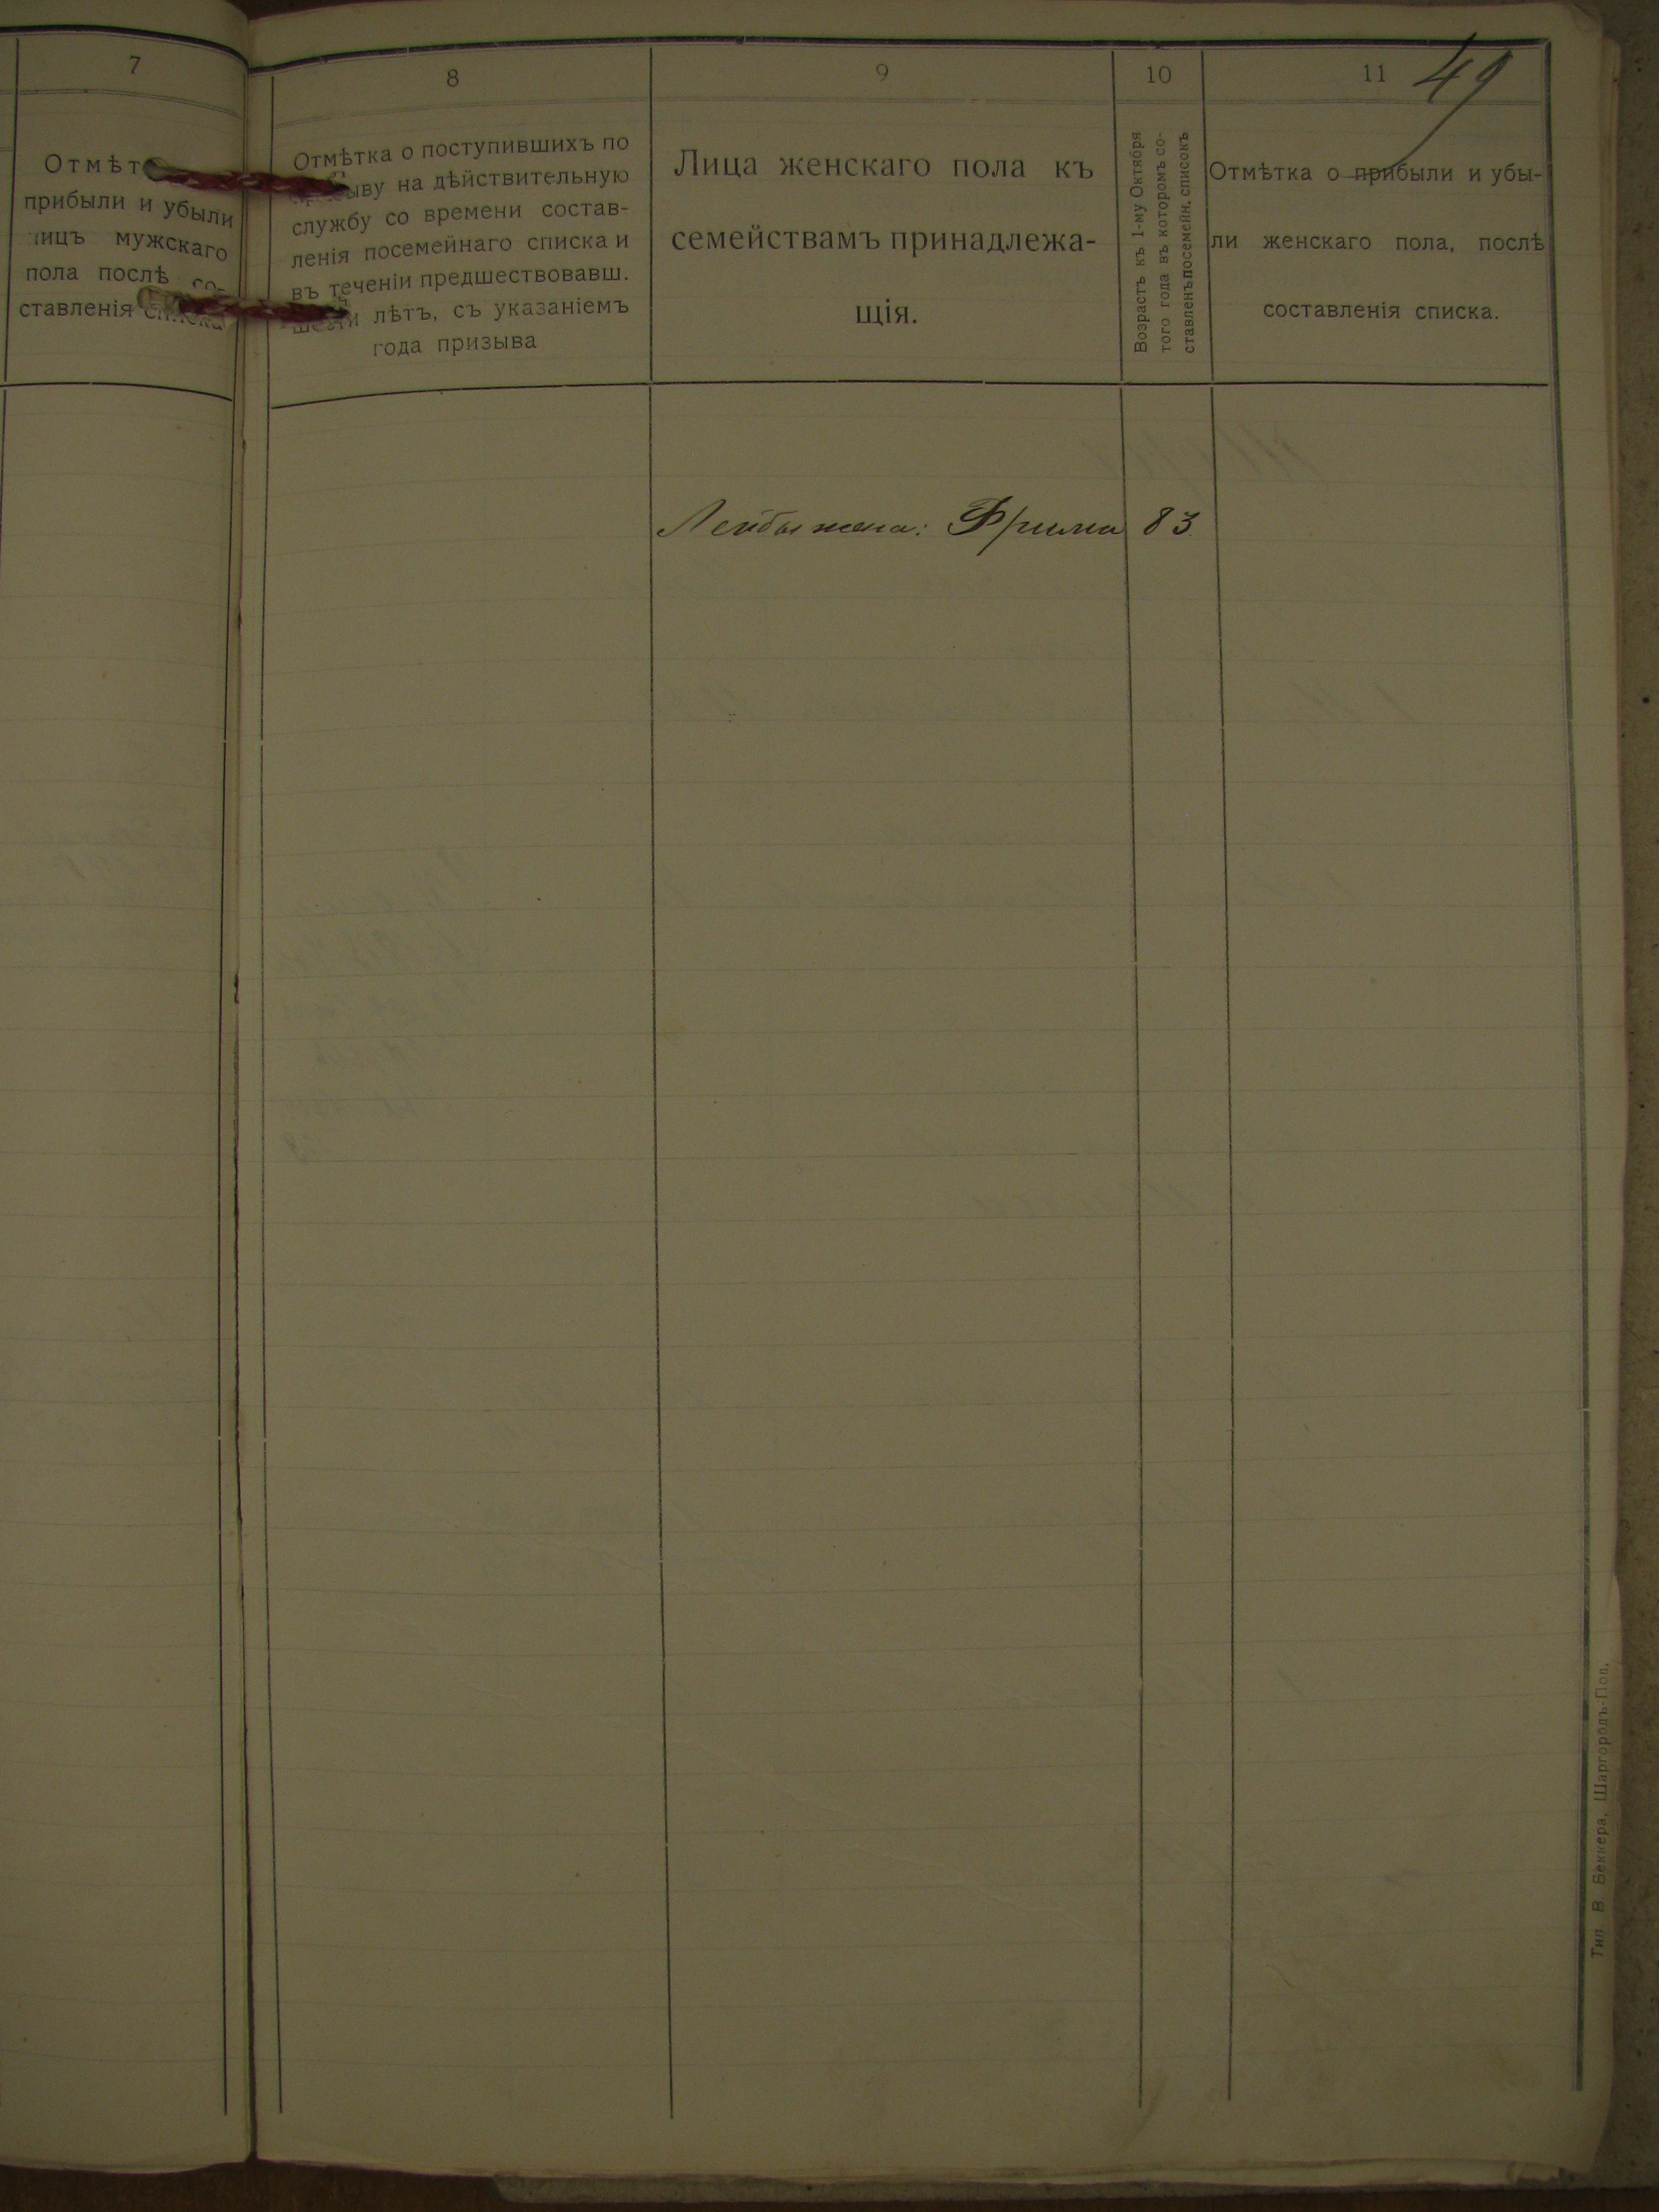 7
Отмѣт
прибыли и убыли
лицъ мужскаго
пола послѣ со-
ставленія списка
8
Отмѣтка о поступившихъ по
ыву на дѣйствительную
службу со времени состав-
ленія посемейнаго списка и
въ теченіи предшествовавш.
шести лѣтъ, съ указаніемъ
года призыва
9
Лица женскаго пола къ
семействамъ принадлежа-
щія.
10
Возрастъ къ 1-му Октября
того года въ которомъ со-
ставленъ посемейн. списокъ
11
49
Отмѣтка о прибыли и убы-
ли женскаго пола, послѣ
составленія списка.
Лейбы жена: Фрима 83
Тип. В. Беккера, Шаргородъ-Под.